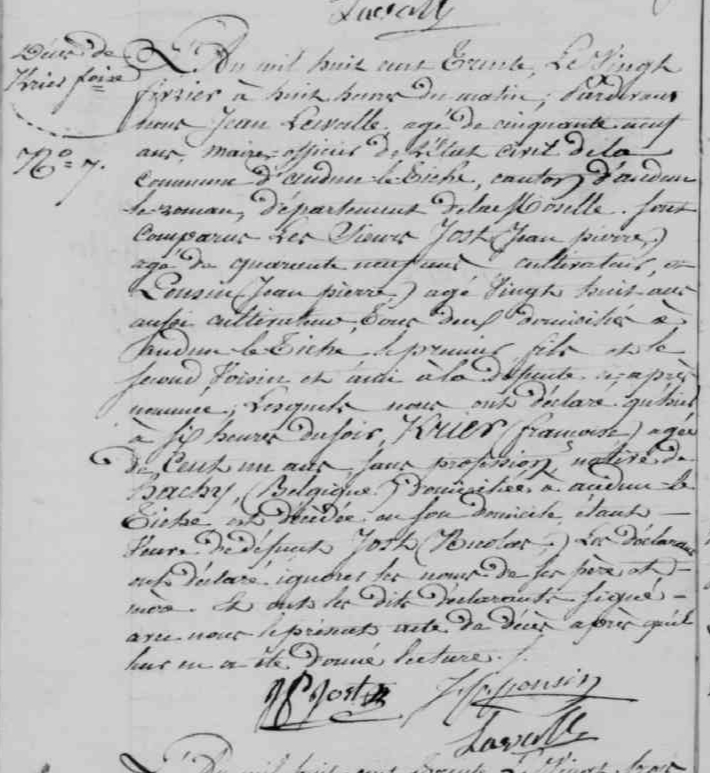 Lavalle
Décès de
Krier foise
N.o 7.
L'An mil huit cent Trente, Le Vingt
février à huit heures du matin, Pardevant
nous Jean Lavalle, agé de cinquante neuf
ans, maire officier de L'état civil de la
commune d'audun-le-Tiche, canton d'audun
le-roman, département de la Moselle. Sont
comparus Les Sieurs Jost (Jean pierre)
agé de quarante neuf ans cultivateur, et
Ponsin (Jean pierre) agé Vingt huit ans
aussi cultivateur, Tous deux domiciliés à
audun-le-Tiche le premier fils et le
second Voisin et ami à la défunte ci-après
nommée, Lesquels nous ont déclaré qu'hier
à six heures du soir, Krier (françoise) agée
de Cent un ans sans profession, native de
Hachy, (Belgique) domiciliée à audun-le
Tiche est décédée en son domicile, étant
Veuve de défunt Jost (Nicolas,) Les déclarans
ont déclaré ignorer les noms de ses père et
mère. Et ont les dits déclarants signé
avec nous le présent acte de décès après qu'il
leur en a été donné lecture.
JP Jost J. P. ponsin
Lavalle
L'An mil huit cent Trente, Vingt trois